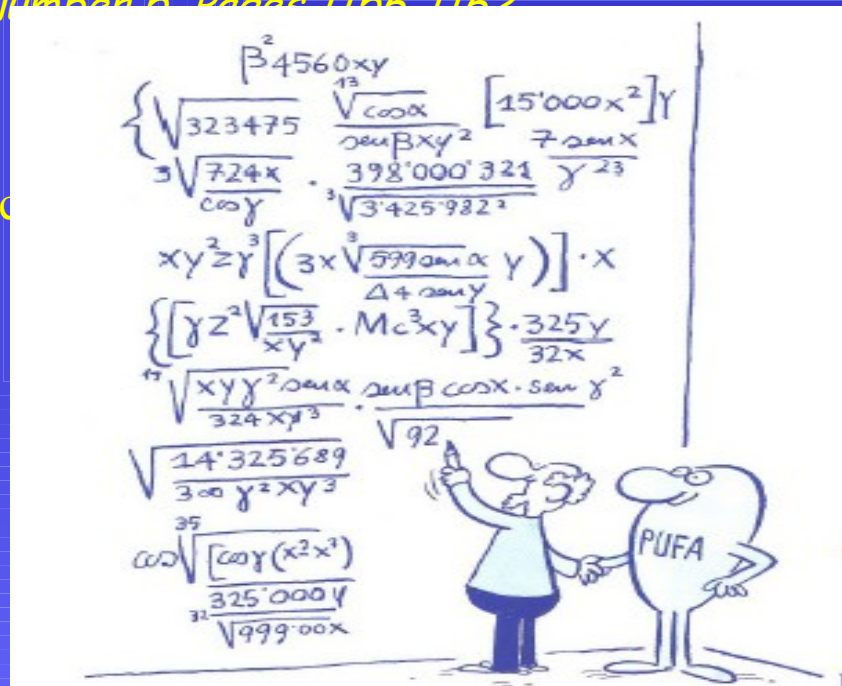 β²4560xy
{√323475 ¹³√cosα/senβxy² [15'000x²]γ
³√724x/cosγ · 398'000'321/³√3'425'982² 7senx/γ²³
xy²zγ³[(3x³√599senα/Δ4seny y)]·x
{[γz²√153/xy² · Mc³xy]}·325y/32x
√xyγ²senα/324xy³ · senβcosx·senγ²/√92
√14'325'689/300γ²xy³
cos³⁵√[cosγ(x²x³)
325'000y
³²√999'00x
PUFA